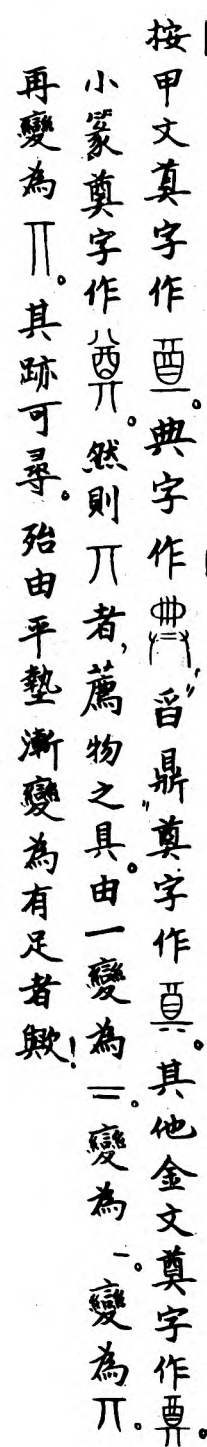 按甲文奠字作。典字作"舀鼎"奠字作。其他金文奠字作。
小篆奠字作。然則丌者，薦物之具。由一變為二。變為一。變為丌。
再變為。其跡可尋。殆由平墊漸變為有足者歟！